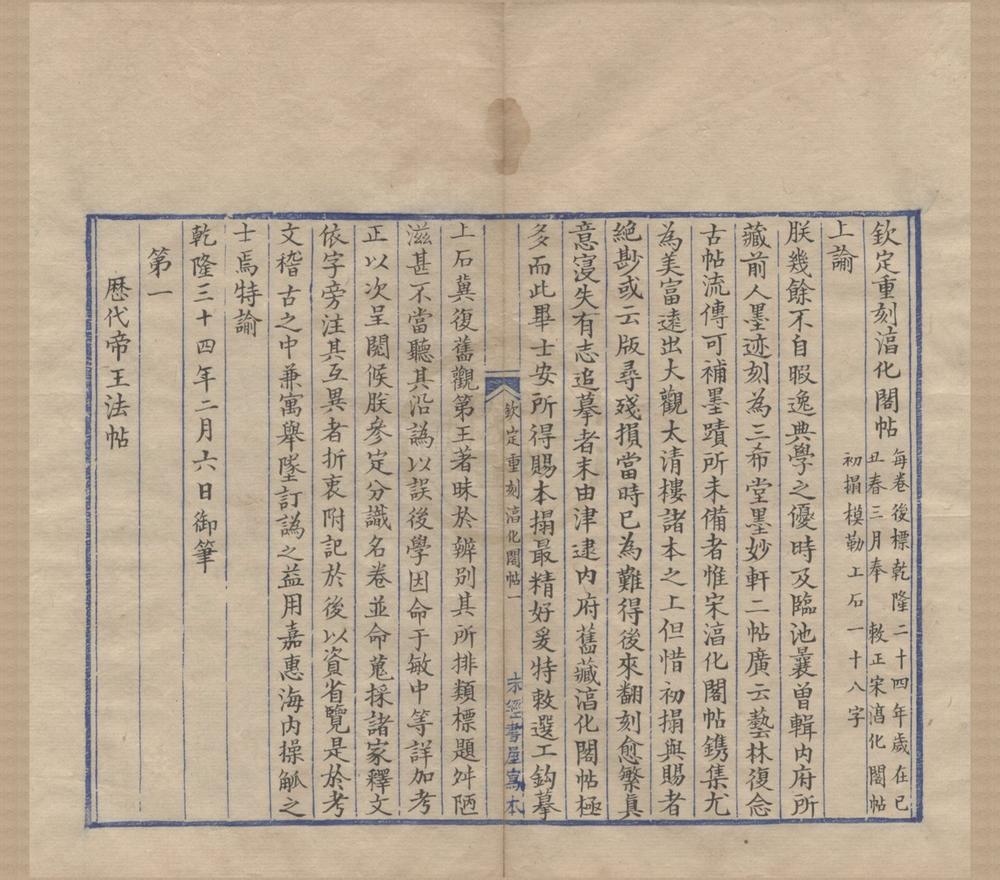 欽定重刻湻化閣帖
每卷後標乾隆二十四年歲在己
丑春三月奉 敕正宋湻化閣帖
初搨模勒上石一十八字
上諭
朕幾餘不自暇逸典學之優時及臨池曩曾輯内府所
藏前人墨迹刻為三希堂墨妙軒二帖廣示藝林復念
古帖流傳可補墨蹟所未備者惟宋湻化閣帖鐫集尤
為美富遠出大觀太清樓諸本之上但惜初搨與賜者
絕尠或云版尋殘損當時已為難得後來翻刻愈繁眞
意寖失有志追摹者末由津逮内府舊藏湻化閣帖極
多而此畢士安所得賜本搨最精好爰特敕選工鈎摹
欽定重刻湻化閣帖一
求經書屋寫本
上石冀復舊觀第王著昧於辨别其所排類標題舛陋
滋甚不當聽其沿譌以誤後學因命于敏中等詳加考
正以次呈閱候朕參定分識名卷並命蒐採諸家釋文
依字旁注其互異者折衷附記於後以資省覽是於考
文稽古之中兼寓舉墜訂譌之益用嘉惠海内操觚之
士焉特諭
乾隆三十四年二月六日御筆
第一
歴代帝王法帖